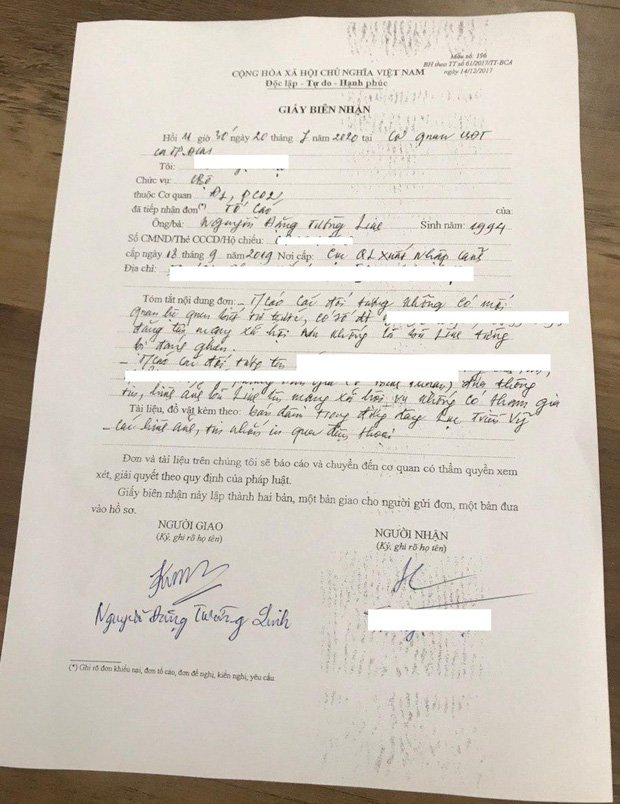 Mẫu số: 196
BH theo TT số 61/2017/TT-BCA
ngày 14/12/2017
CỘNG HÒA XÃ HỘI CHỦ NGHĨA VIỆT NAM
Độc lập - Tự do - Hạnh phúc
GIẤY BIÊN NHẬN
Hồi 11 giờ 30 ngày 20 tháng 7 năm 2020 tại Cơ quan
Tôi:
Chức vụ:
thuộc Cơ quan
đã tiếp nhận đơn(*) Tố Cáo của:
Ông/bà: Nguyễn Đặng Tường Linh Sinh năm: 1994
Số CMND/Thẻ CCCD/Hộ chiếu:
cấp ngày 18 tháng 9 năm 2019 Nơi cấp: Cục QL Xuất Nhập Cảnh
Địa chỉ:
Tóm tắt nội dung đơn: - T/cáo các đối tượng không có mối
quan hệ quen biết từ trước, có số đt
đăng tin mạng xã hội nói không là bà Linh tường
- T/cáo các đối tượng tên
đưa thông
tin, hình ảnh bà Linh lên mạng xã hội vụ không có tham gia
Tài liệu, đồ vật kèm theo: bán dâm trong đường dây Lục Triều Vỹ
- Các hình ảnh, tin nhắn in qua điện thoại
Đơn và tài liệu trên chúng tôi sẽ báo cáo và chuyển đến cơ quan có thẩm quyền xem
xét, giải quyết theo quy định của pháp luật.
Giấy biên nhận này lập thành hai bản, một bản giao cho người gửi đơn, một bản đưa
vào hồ sơ.
NGƯỜI GIAO
(Ký, ghi rõ họ tên)
Nguyễn Đặng Tường Linh
NGƯỜI NHẬN
(Ký, ghi rõ họ tên)
(*) Ghi rõ đơn khiếu nại, đơn tố cáo, đơn đề nghị, kiến nghị, yêu cầu